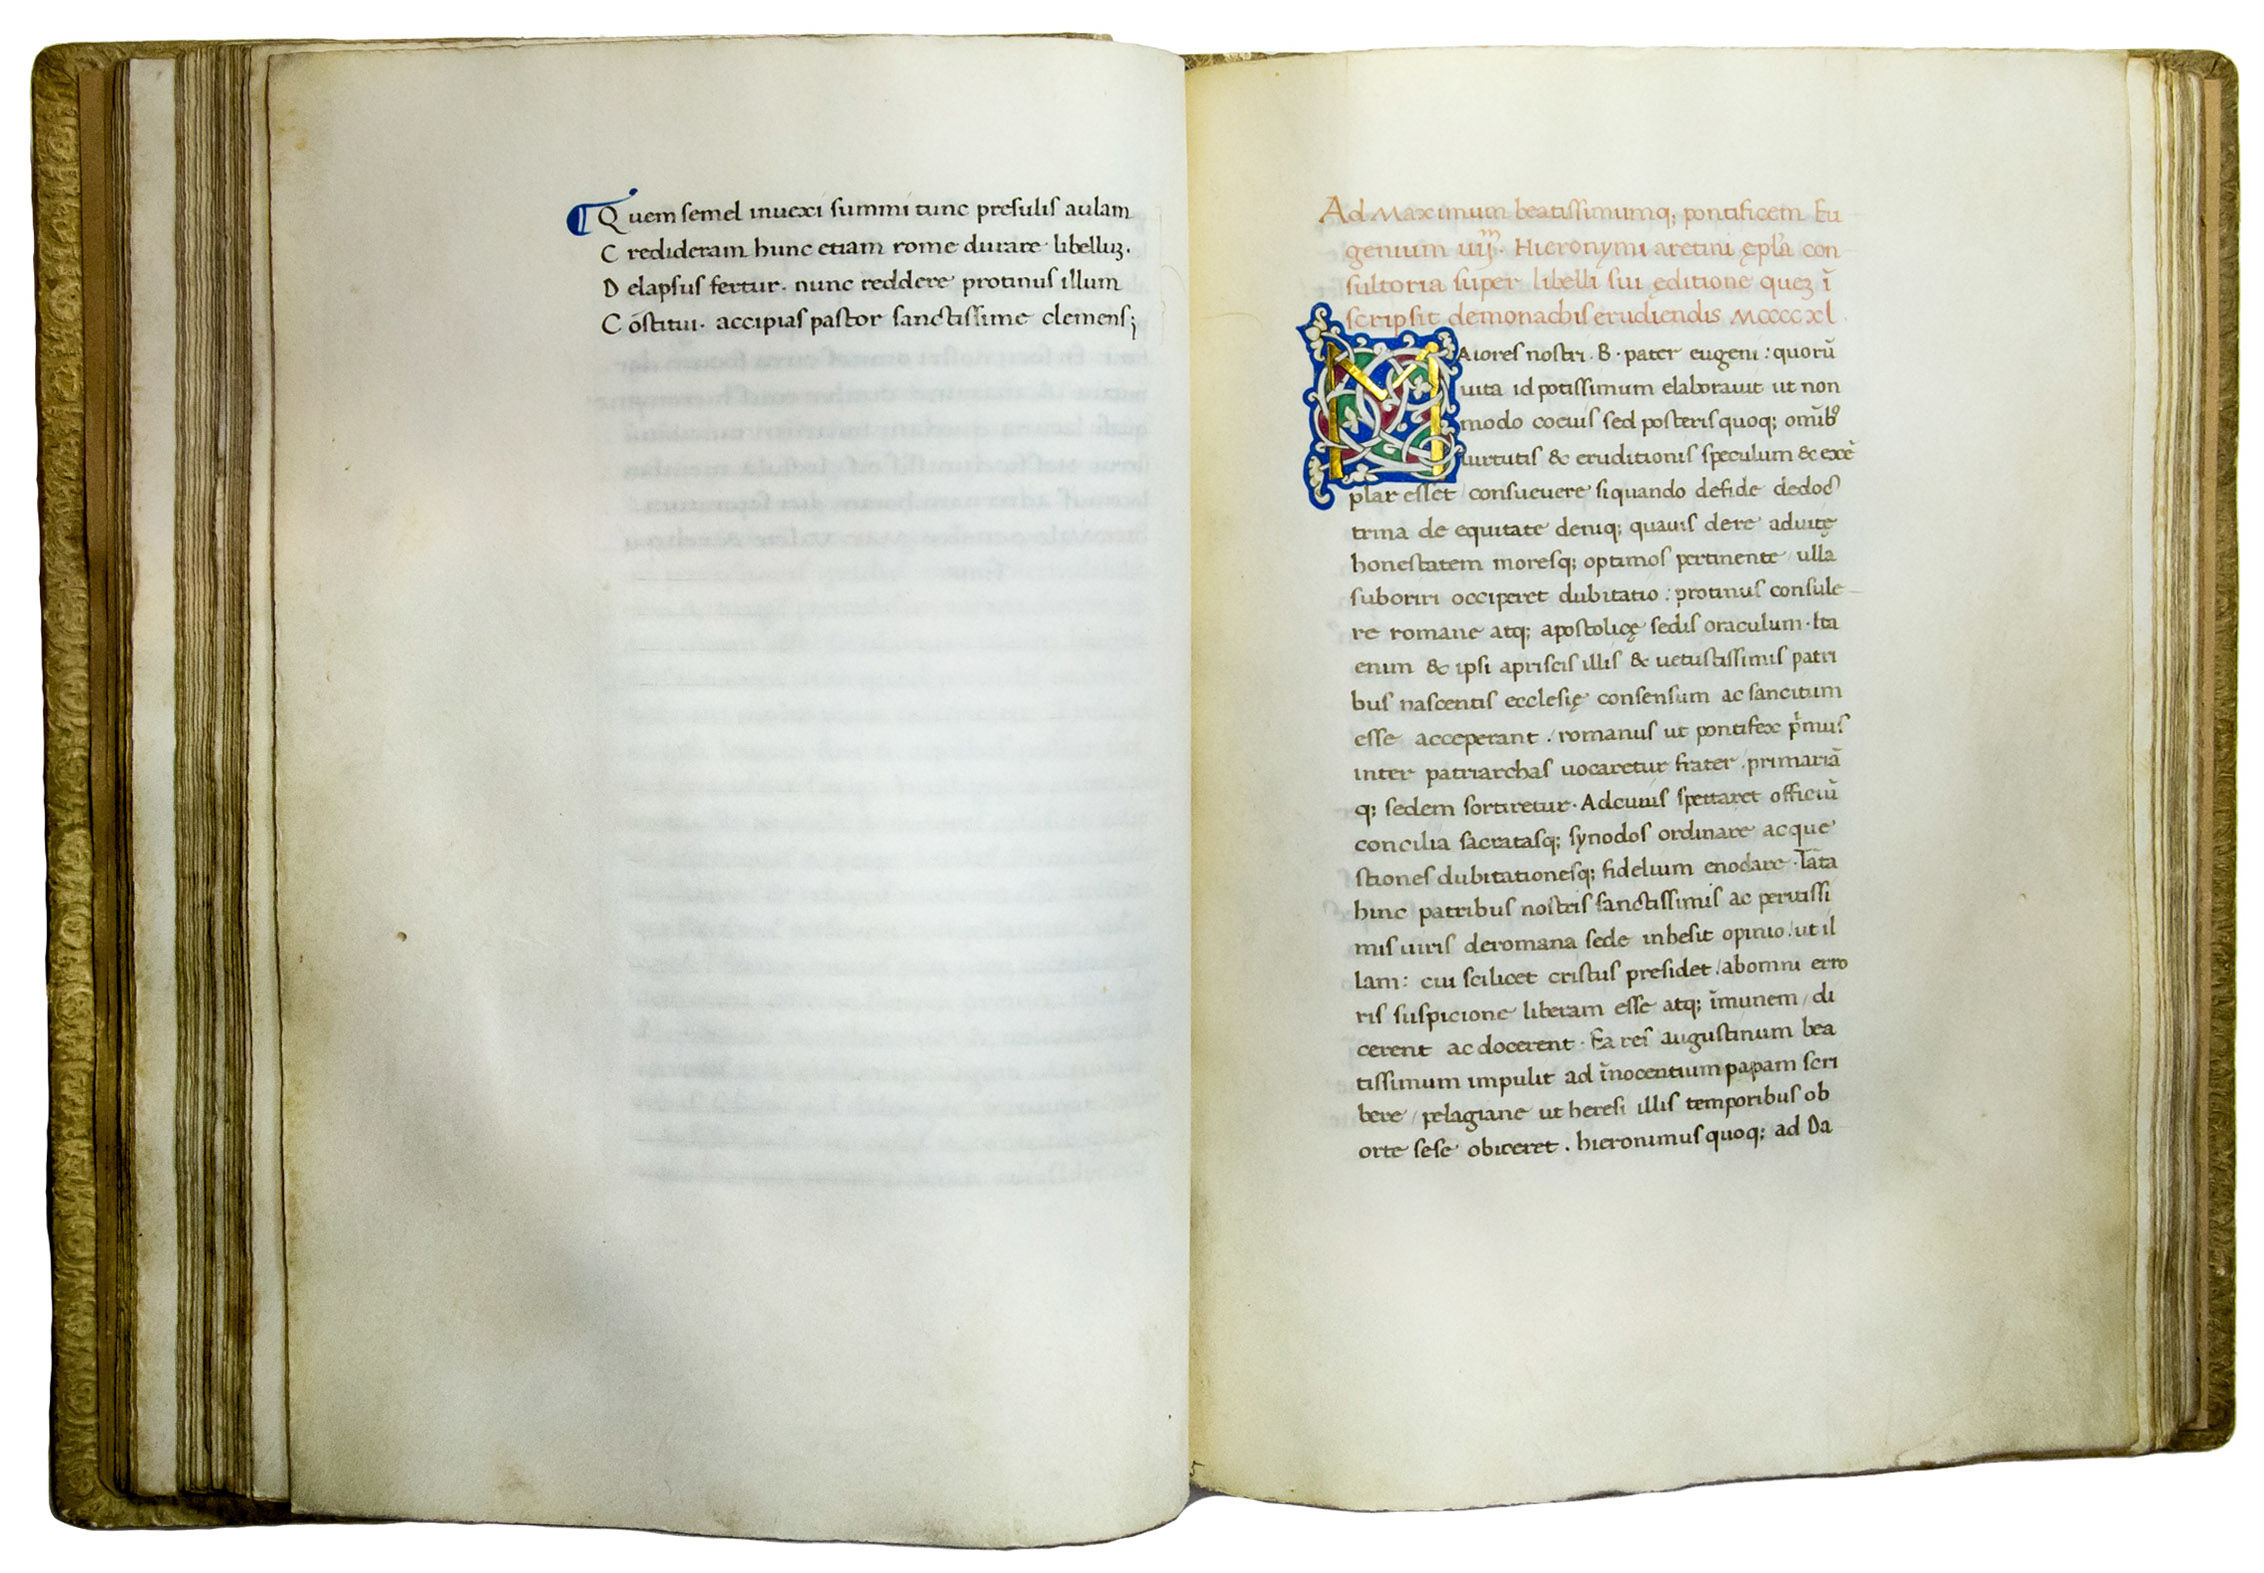 Quem semel inuexi summi tunc presulis aulam
Credideram hunc etiam rome durare · libelluꝫ ·
Delapsus fertur · nunc reddere protinus illum
Cōstitui · accipias pastor sanctissime clemens;
Ad Maximum beatissimumq; pontificem Eu
genium iiijᵐ · Hieronymi aretini ępl̄a con
sultoria super libelli sui ęditione queꝫ ī
scripsit de monachis erudiendis MCCCCXL ·
MAiores nostri · B · pater eugeni : quorū
uita id potissimum elaborauit ut non
modo coeuis sed posteris quoq; omībꝰ
uirtutis & eruditionis speculum & exē
plar esset / consueuere siquando de fide de doc
trina de equitate deniq; quauis de re ad uitę
honestatem moresq; optimos pertinente / ulla
suboriri occiperet dubitatio : protinus consule
re romane atq; apostolicę sedis oraculum · Ita
enim & ipsi a priscis illis & uetustissimis patri
bus nascentis ecclesię consensum ac sancitum
esse acceperant · romanus ut pontifex p̄mus
inter patriarchas uocaretur frater · primariā
q; sedem sortiretur · Ad cuius spectaret officiū
concilia sacratasq; synodos ordinare ac que
stiones dubitationesq; fidelium enodare · Tāta
hinc patribus nostris sanctissimis ac peritissi
mis uiris de romana sede inhesit opinio / ut il
lam : cui scilicet cristus presidet / ab omni erro
ris suspicione liberam esse atq; īmunem / di
cerent ac docerent · Ea res augustinum bea
tissimum impulit ad īnocentium papam scri
bere / pelagiane ut heresi illis temporibus ob
orte sese obiceret · hieronimus quoq; ad Da